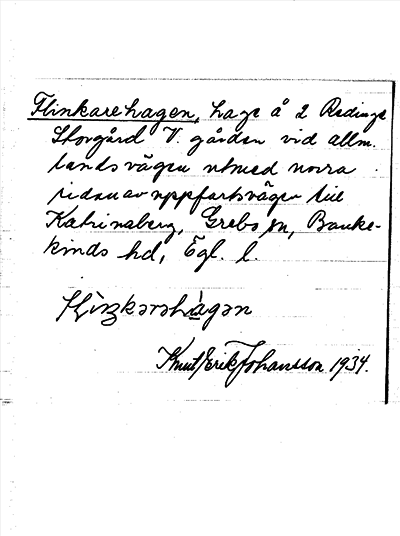 Flinkarehagen, hage å 2 Redinge
Storgård V. gården vid allm.
landsvägen utmed norra
sidan av uppfartsvägen till
Katrinaberg, Grebo sn, Banke-
kinds hd, Ögl. l.
Knut Erik Johansson 1934.